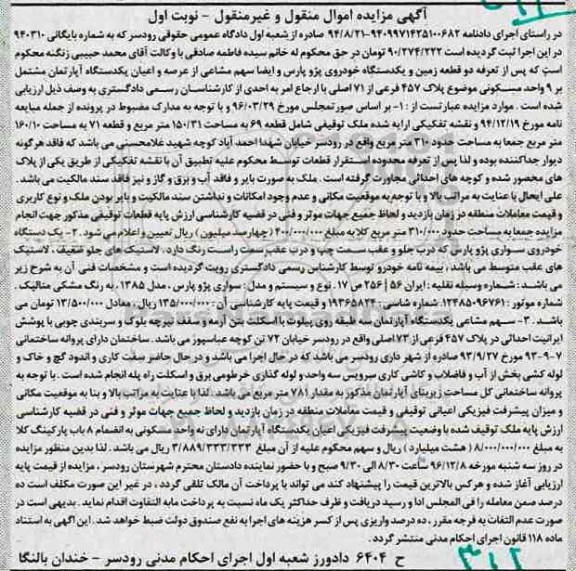 آگهی مزایده اموال منقول و غیرمنقول - نوبت اول
در راستای اجرای دادنامه ۹۴۰۹۹۷۱۴۲۵۱۰۰۶۸۲-۹۴/۸/۲۱ صادره از شعبه اول دادگاه عمومی حقوقی رودسر که به شماره بایگانی ۹۴۰۳۱۰
در این اجرا ثبت گردیده است ۹۰/۲۷۴/۲۲۲ تومان در حق محکوم له خانم سیده فاطمه صادقی با وکالت آقای محمد حبیبی زنگنه محکوم
است که پس از تعرفه دو قطعه زمین و یکدستگاه خودروی پژو پارس و ایضا سهم مشاعی از عرصه و اعیان یکدستگاه آپارتمان مشتمل
بر ۹ واحد مسکونی موضوع پلاک ۴۵۷ فرعی از ۷۱ اصلی با ارجاع امر به احدی از کارشناسان رسمی دادگستری به وصف ذیل ارزیابی
شده است . موارد مزایده عبارتست از : ۱- بر اساس صورتمجلس مورخ ۹۶/۰۳/۲۹ و با توجه به مدارک مضبوط در پرونده از جمله مبایعه
نامه مورخ ۹۴/۱۲/۱۹ و نقشه تفکیکی ارایه شده ملک توقیفی شامل قطعه ۶۹ به مساحت ۱۵۰/۳۱ متر مربع و قطعه ۷۱ به مساحت ۱۶۰/۱۰
متر مربع جمعا به مساحت حدود ۳۱۰ متر مربع واقع در رودسر خیابان شهدا احمد آباد کوچه شهید غلامحسنی می باشد که فاقد هرگونه
دیوار جداکننده بوده و لذا پس از تعرفه محدوده استقرار قطعات توسط محکوم علیه تطبیق آن با نقشه تفکیکی از طریق یکی از پلاک
های محصور شده و کوچه های احداثی مجاورت گرفته است . ملک به صورت بایر و فاقد آب و برق و گاز و نیز فاقد سند مالکیت می باشد .
علی ایحال با عنایت به مراتب بالا و با توجه به موقعیت مکانی و عدم وجود امکانات و نداشتن سند مالکیت و بایر بودن ملک و نوع کاربری
و قیمت معاملات منطقه در زمان بازدید و لحاظ جمیع جهات موثر و فنی در قضیه کارشناسی ارزش پایه قطعات توقیفی مذکور جهت انجام
مزایده جمعا به مساحت حدود ۳۱۰/۰۰ متر مربع کلا به مبلغ ۴۰۰/۰۰۰/۰۰۰ (چهارصد میلیون) ریال تعیین و اعلام می شود . ۲- یک دستگاه
خودروی سواری پژو پارس که درب جلو و عقب سمت چپ و درب عقب سمت راست رنگ دارد ، لاستیک های جلو ضعیف ، لاستیک
های عقب متوسط می باشد ، بیمه نامه خودرو توسط کارشناس رسمی دادگستری رویت گردیده است و مشخصات فنی آن به شرح زیر
می باشد : شماره وسیله نقلیه : ایران ۵۶ | ۲۵۶ ص ۱۷ ، نوع و سیستم و مدل : سواری پژو پارس ، مدل ۱۳۸۵ ، به رنگ مشکی متالیک .
شماره موتور : ۱۲۴۸۵۰۹۶۷۶۱ شماره شاسی : ۱۹۳۶۵۸۲۴ و قیمت پایه کارشناسی آن : ۱۳۵/۰۰۰/۰۰۰ ریال ، معادل ۱۳/۵۰۰/۰۰۰ تومان می
باشد . ۳- سهم مشاعی یکدستگاه آپارتمان سه طبقه روی پیلوت با اسکلت بتن آرمه و سقف تیرچه بلوک و سربندی چوبی با پوشش
ایرانیت احداثی در پلاک ۴۵۷ فرعی از ۷۳ اصلی واقع در رودسر خیابان ۷۲ تن کوچه عباسپور می باشد . ساختمان دارای پروانه ساختمانی
۹۳-۹-۷ مورخ ۹۳/۹/۲۷ صادره از شهر داری رودسر می باشد که در حال اجرا می باشد و در حال حاضر سفت کاری و اندود گچ و خاک و
لوله کشی بخش از آب و فاضلاب و کاشی کاری سرویس سه واحد و لوله گذاری خرطومی برق و اسکلت راه پله انجام شده است . با توجه به
پروانه ساختمانی کل مساحت زیربنای آپارتمان مذکور به مقدار ۷۸۱ متر مربع می باشد . لذا با عنایت به مراتب بالا و بنا به موقعیت مکانی
و میزان پیشرفت فیزیکی اعیانی توقیفی و قیمت معاملات منطقه در زمان بازدید و لحاظ جمیع جهات موثر و فنی در قضیه کارشناسی
ارزش پایه ملک توقیف شده با وضعیت پیشرفت فیزیکی اعیان یکدستگاه آپارتمان دارای نه واحد مسکونی به انضمام ۸ باب پارکینگ کلا
به مبلغ ۸/۰۰۰/۰۰۰/۰۰۰ ( هشت میلیارد ) ریال و سهم محکوم علیه از آن مبلغ ۳/۸۸۹/۳۳۳/۳۳۳ ریال می باشد . لذا بدین منظور مزایده
در روز سه شنبه مورخه ۹۶/۱۲/۸ ساعت ۸/۳۰ الی ۹/۳۰ صبح و با حضور نماینده دادستان محترم شهرستان رودسر ، مزایده از قیمت پایه
ارزیابی آغاز شده و هرکس بالاترین قیمت را پیشنهاد کند می تواند با پرداخت آن مالک تلقی گردد ، در غیر این صورت مکلف است ده
درصد ضمن معامله را فی المجلس ادا و رسید دریافت و ظرف حداکثر یک ماه نسبت به پرداخت مابه التفاوت اقدام نماید . بدیهی است در
صورت عدم التفات به فرجه مقرر ، ده درصد واریزی پس از کسر هزینه های اجرا به نفع صندوق دولت ضبط خواهد شد . این آگهی به استناد
ماده ۱۱۸ قانون اجرای احکام مدنی منتشر گردد .
ح ۶۴۰۴ دادورز شعبه اول اجرای احکام مدنی رودسر - خندان بالنگا